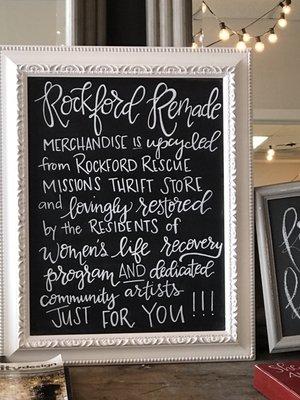 Rockford Remade
MERCHANDISE is upcycled
from ROCKFORD RESCUE
MISSIONS THRIFT STORE
and lovingly restored
by the RESIDENTS OF
women's life recovery
program AND dedicated
community artists
JUST FOR YOU !!!